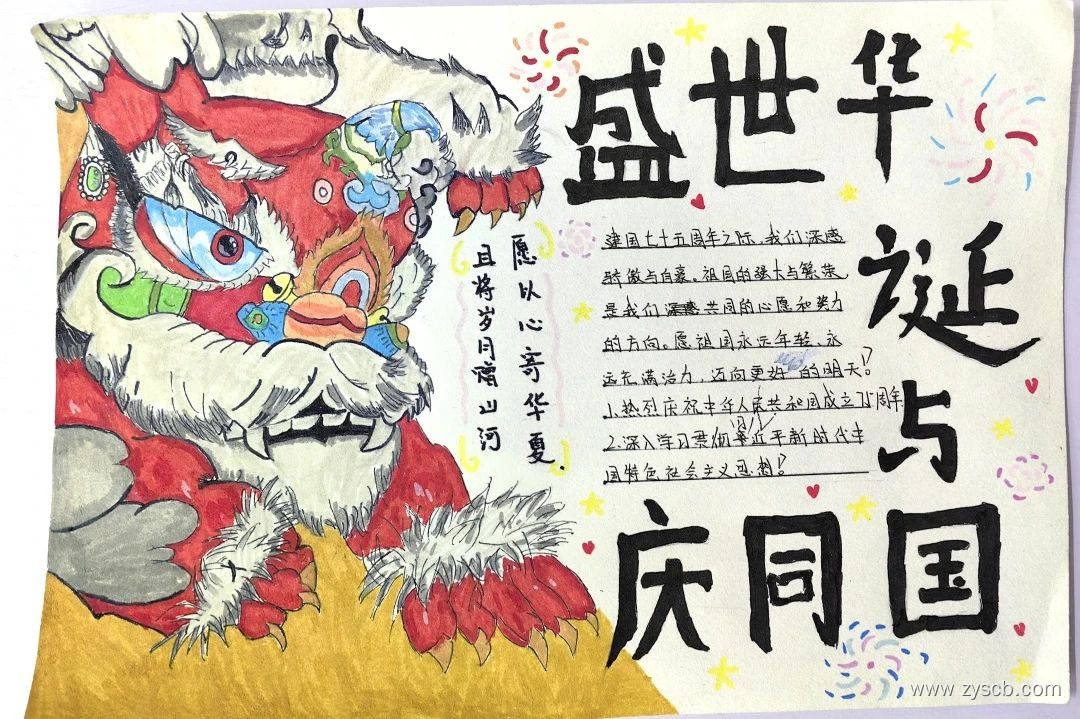 盛世华
诞
与
国同庆
愿以心寄华夏.
且将岁月赠山河
建国七十五周年之际,我们深感
骄傲与自豪。祖国的强大与繁荣
是我们共同的心愿和努力
的方向。愿祖国永远年轻、永
远充满活力,迈向更好的明天!
1.热烈庆祝中华人民共和国成立75周年
2.深入学习贯彻习近平新时代中
国特色社会主义思想!
www.zyscb.com